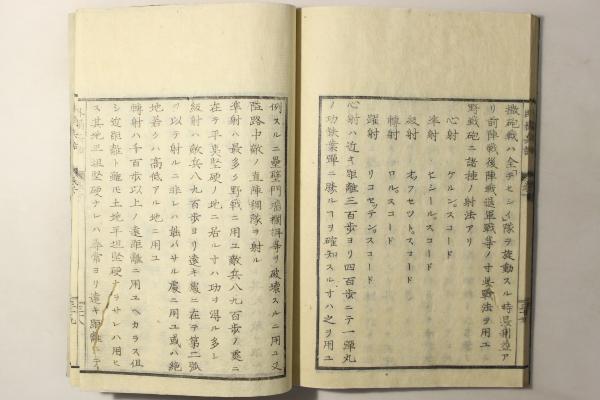 撒砲戦ハ全クセシイ隊ヲ旋動スル時景
リ前陣戦後陣戦進軍戦等ノ寸奨戦法ヲ用ユ
野戦砲ニ諸種ノ射法アリ
心射 ケルンスコード
準射 ヒシールスコード
級射 オフセツトスコード
轉射 ロルスコード
躍射 リコセッテンスコード
心射ハ近キ距離三百歩ヨリ四百歩ニテ一弾丸
ノ功鉄葉弾ニ勝ルヿヲ確知スル寸ハ之ヲ用ユ
例スルニ塁壁門墻欄等ヲ破壊スルニ用ユ又
隘路中敵ノ直陣稠隊ヲ射ル
準射ハ最多ク野戦ニ用ユ敵兵八九百歩ノ處ニ
在テ平衷堅硬ノ地ニ若ルナハ功ヲ得ル多シ
級射ハ敵兵八九百歩ヨリ遠キ處ニ在テ第二弧
ヲ以テ射ルニ非レハ能ハサル處ニ用ユ或ハ絶
地若クハ高低アル地ニ用ユ
轉射ハ千百歩以上ノ遠距離ニ用ユヘカラス但
シ近距離ト雖モ土地平坦堅硬ナラサレハ用ヒ
ス其地平坦堅硬ナレハ尋常ヨリ遠キ距離ニテ